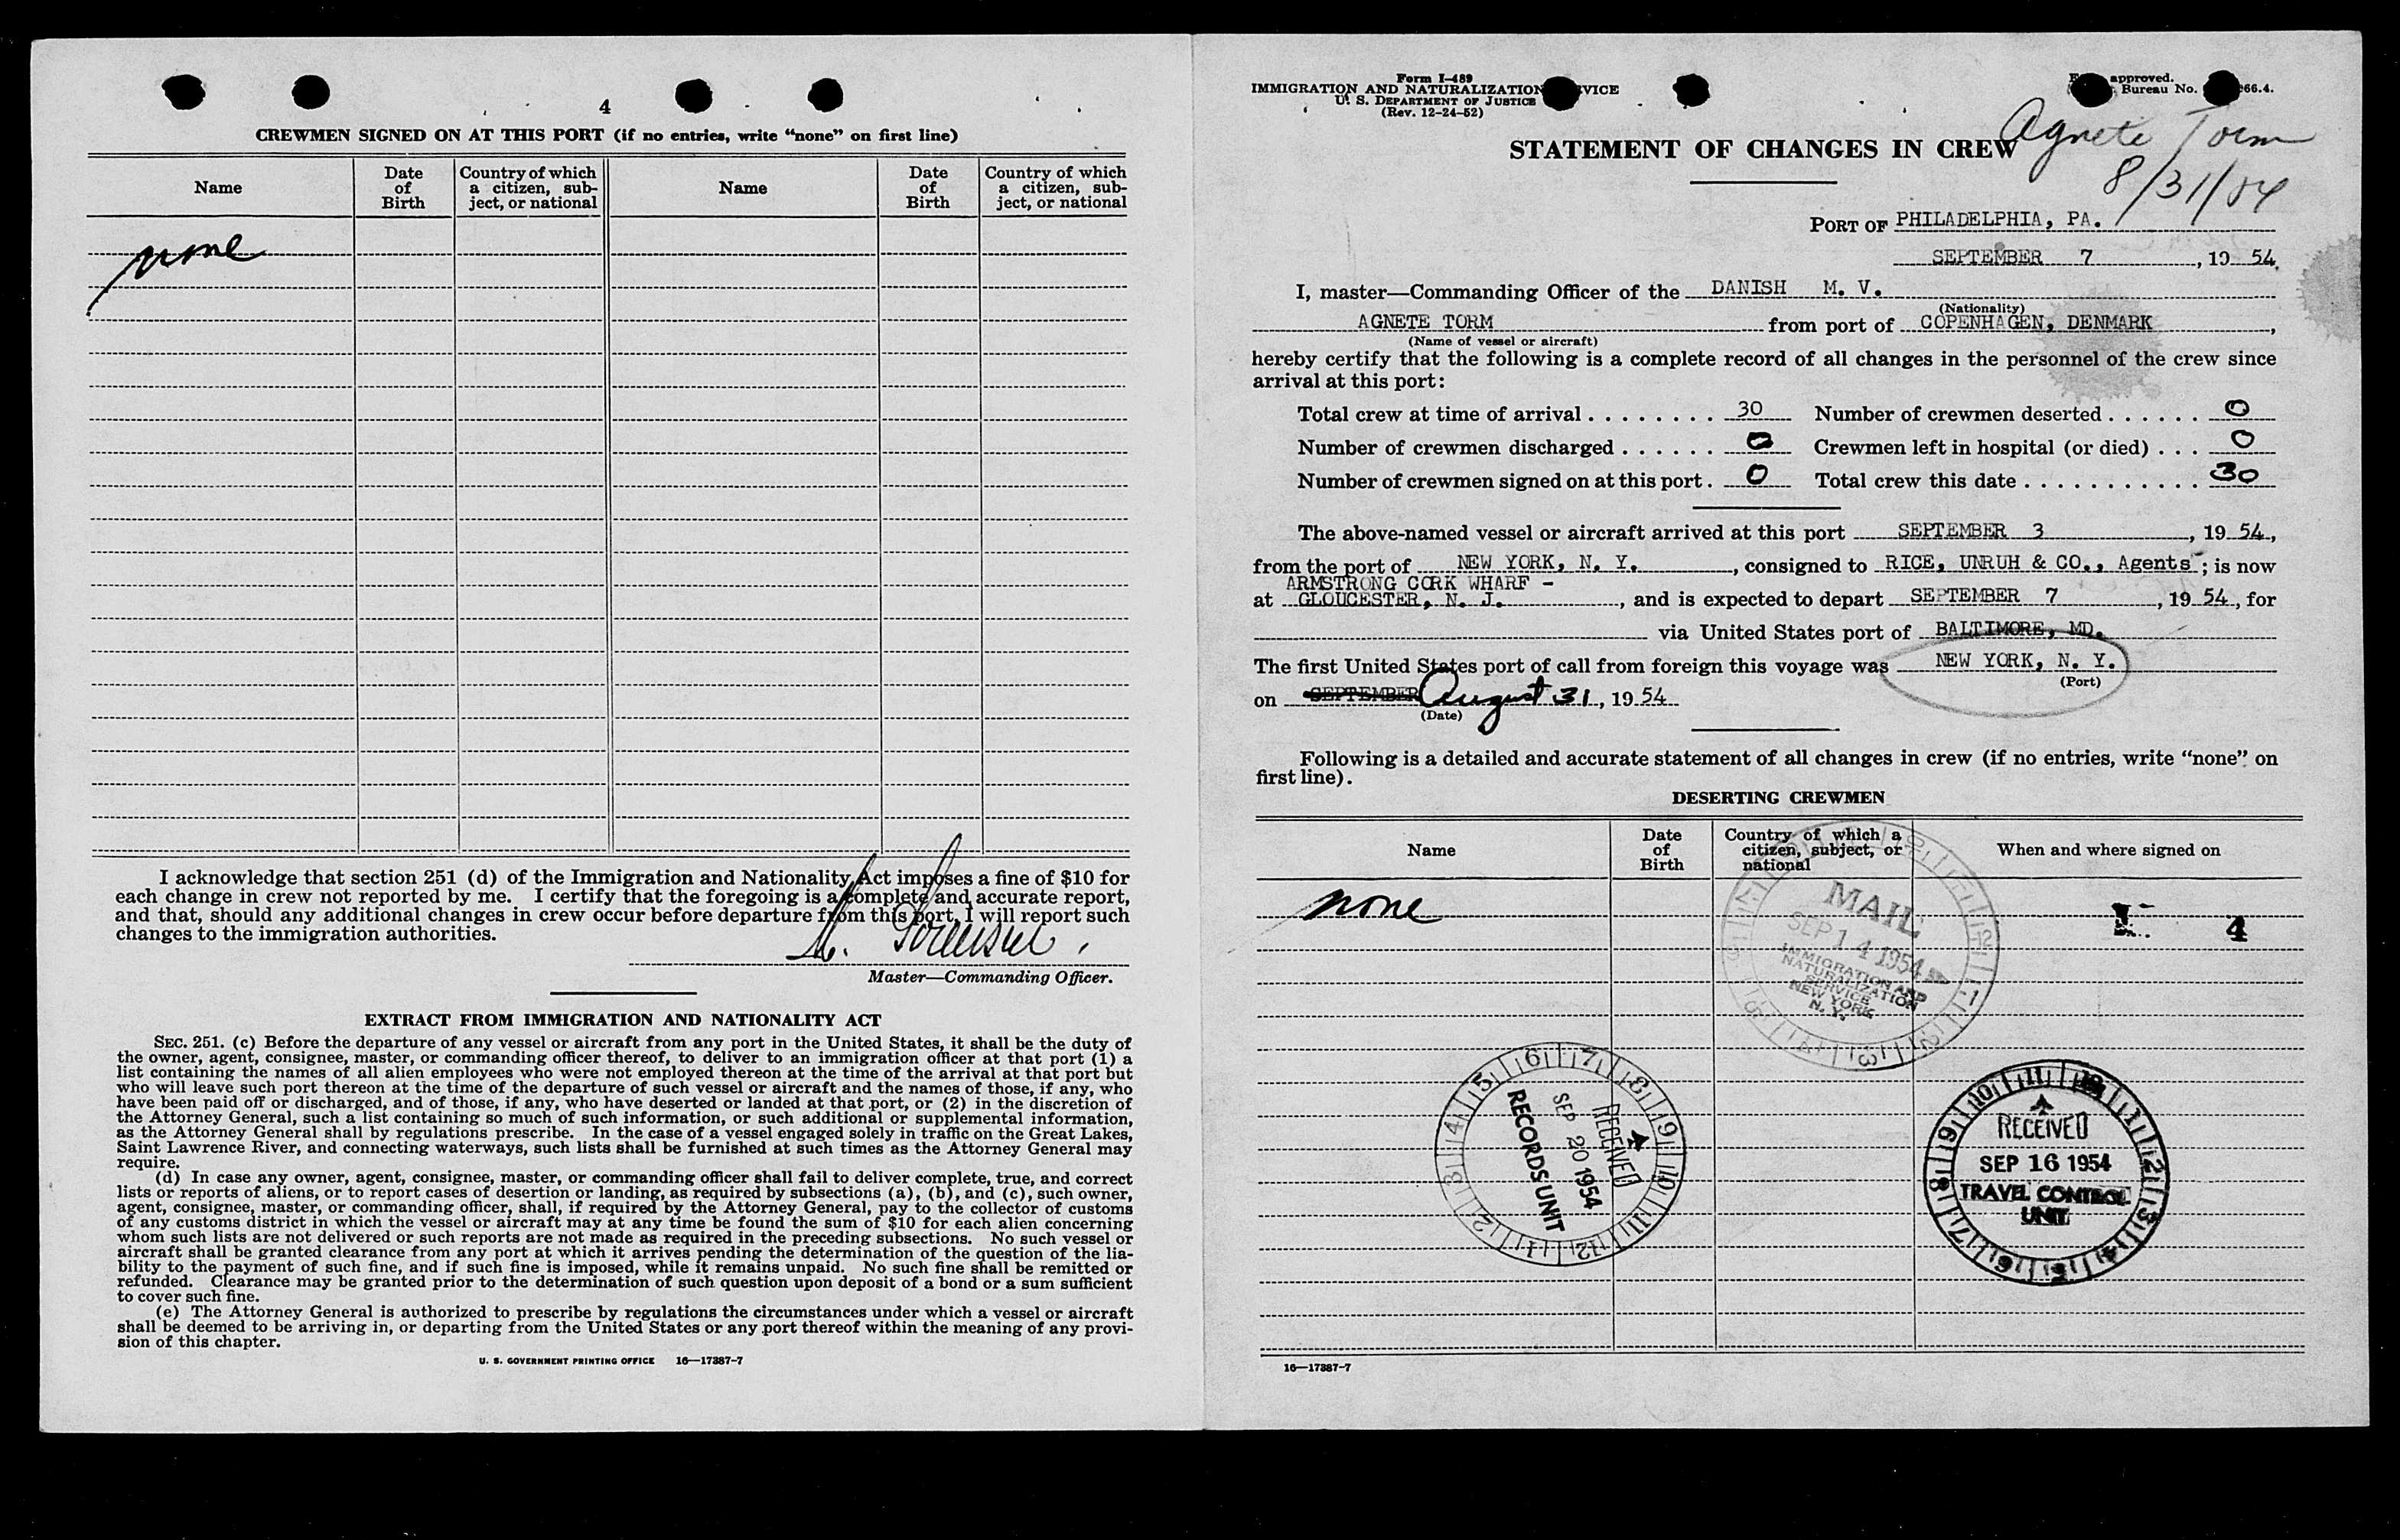 4
CREWMEN SIGNED ON AT THIS PORT (if no entries, write “none” on first line)
Name
Date of Birth
Country of which a citizen, sub-ject, or national
Name
Date of Birth
Country of which a citizen, sub-ject, or national
none
I acknowledge that section 251 (d) of the Immigration and Nationality Act imposes a fine of $10 for
each change in crew not reported by me. I certify that the foregoing is a complete and accurate report,
and that, should any additional changes in crew occur before departure from this port, I will report such
changes to the immigration authorities.
Master—Commanding Officer.
EXTRACT FROM IMMIGRATION AND NATIONALITY ACT
SEC. 251. (c) Before the departure of any vessel or aircraft from any port in the United States, it shall be the duty of
the owner, agent, consignee, master, or commanding officer thereof, to deliver to an immigration officer at that port (1) a
list containing the names of all alien employees who were not employed thereon at the time of the arrival at that port but
who will leave such port thereon at the time of the departure of such vessel or aircraft and the names of those, if any, who
have been paid off or discharged, and of those, if any, who have deserted or landed at that port, or (2) in the discretion of
the Attorney General, such a list containing so much of such information, or such additional or supplemental information,
as the Attorney General shall by regulations prescribe. In the case of a vessel engaged solely in traffic on the Great Lakes,
Saint Lawrence River, and connecting waterways, such lists shall be furnished at such times as the Attorney General may
require.
(d) In case any owner, agent, consignee, master, or commanding officer shall fail to deliver complete, true, and correct
lists or reports of aliens, or to report cases of desertion or landing, as required by subsections (a), (b), and (c), such owner,
agent, consignee, master, or commanding officer, shall, if required by the Attorney General, pay to the collector of customs
of any customs district in which the vessel or aircraft may at any time be found the sum of $10 for each alien concerning
whom such lists are not delivered or such reports are not made as required in the preceding subsections. No such vessel or
aircraft shall be granted clearance from any port at which it arrives pending the determination of the question of the lia-
bility to the payment of such fine, and if such fine is imposed, while it remains unpaid. No such fine shall be remitted or
refunded. Clearance may be granted prior to the determination of such question upon deposit of a bond or a sum sufficient
to cover such fine.
(e) The Attorney General is authorized to prescribe by regulations the circumstances under which a vessel or aircraft
shall be deemed to be arriving in, or departing from the United States or any port thereof within the meaning of any provi-
sion of this chapter.
U. S. GOVERNMENT PRINTING OFFICE 16—17387-7
Form I-489
IMMIGRATION AND NATURALIZATION
U. S. DEPARTMENT OF JUSTICE
(Rev. 12-24-52)
approved.
Bureau No. 66.4.
Agnete Torm
8/31/54
STATEMENT OF CHANGES IN CREW
PORT OF PHILADELPHIA, PA.
SEPTEMBER 7, 19 54
I, master—Commanding Officer of the DANISH M. V.
(Nationality)
AGNETE TORM from port of COPENHAGEN, DENMARK,
(Name of vessel or aircraft)
hereby certify that the following is a complete record of all changes in the personnel of the crew since
arrival at this port:
Total crew at time of arrival . . . . . . . . 30 Number of crewmen deserted . . . . . . 0
Number of crewmen discharged . . . . . . 0 Crewmen left in hospital (or died) . . . 0
Number of crewmen signed on at this port . 0 Total crew this date . . . . . . . . . . . 30
The above-named vessel or aircraft arrived at this port SEPTEMBER 3, 19 54,
from the port of NEW YORK, N. Y., consigned to RICE, UNRUH & CO., Agents; is now
ARMSTRONG CORK WHARF -
at GLOUCESTER, N. J., and is expected to depart SEPTEMBER 7, 19 54, for
via United States port of BALTIMORE, MD.
The first United States port of call from foreign this voyage was NEW YORK, N. Y.
(Port)
on SEPTEMBER August 31, 19 54
(Date)
Following is a detailed and accurate statement of all changes in crew (if no entries, write “none” on
first line).
DESERTING CREWMEN
Name
Date of Birth
Country of which a citizen, subject, or national
When and where signed on
none
4
MAIL
SEP 14 1954
IMMIGRATION AND
NATURALIZATION
SERVICE
NEW YORK
N. Y.
RECEIVED
SEP 20 1954
RECORDS UNIT
RECEIVED
SEP 16 1954
TRAVEL CONTROL
UNIT
16—17387-7